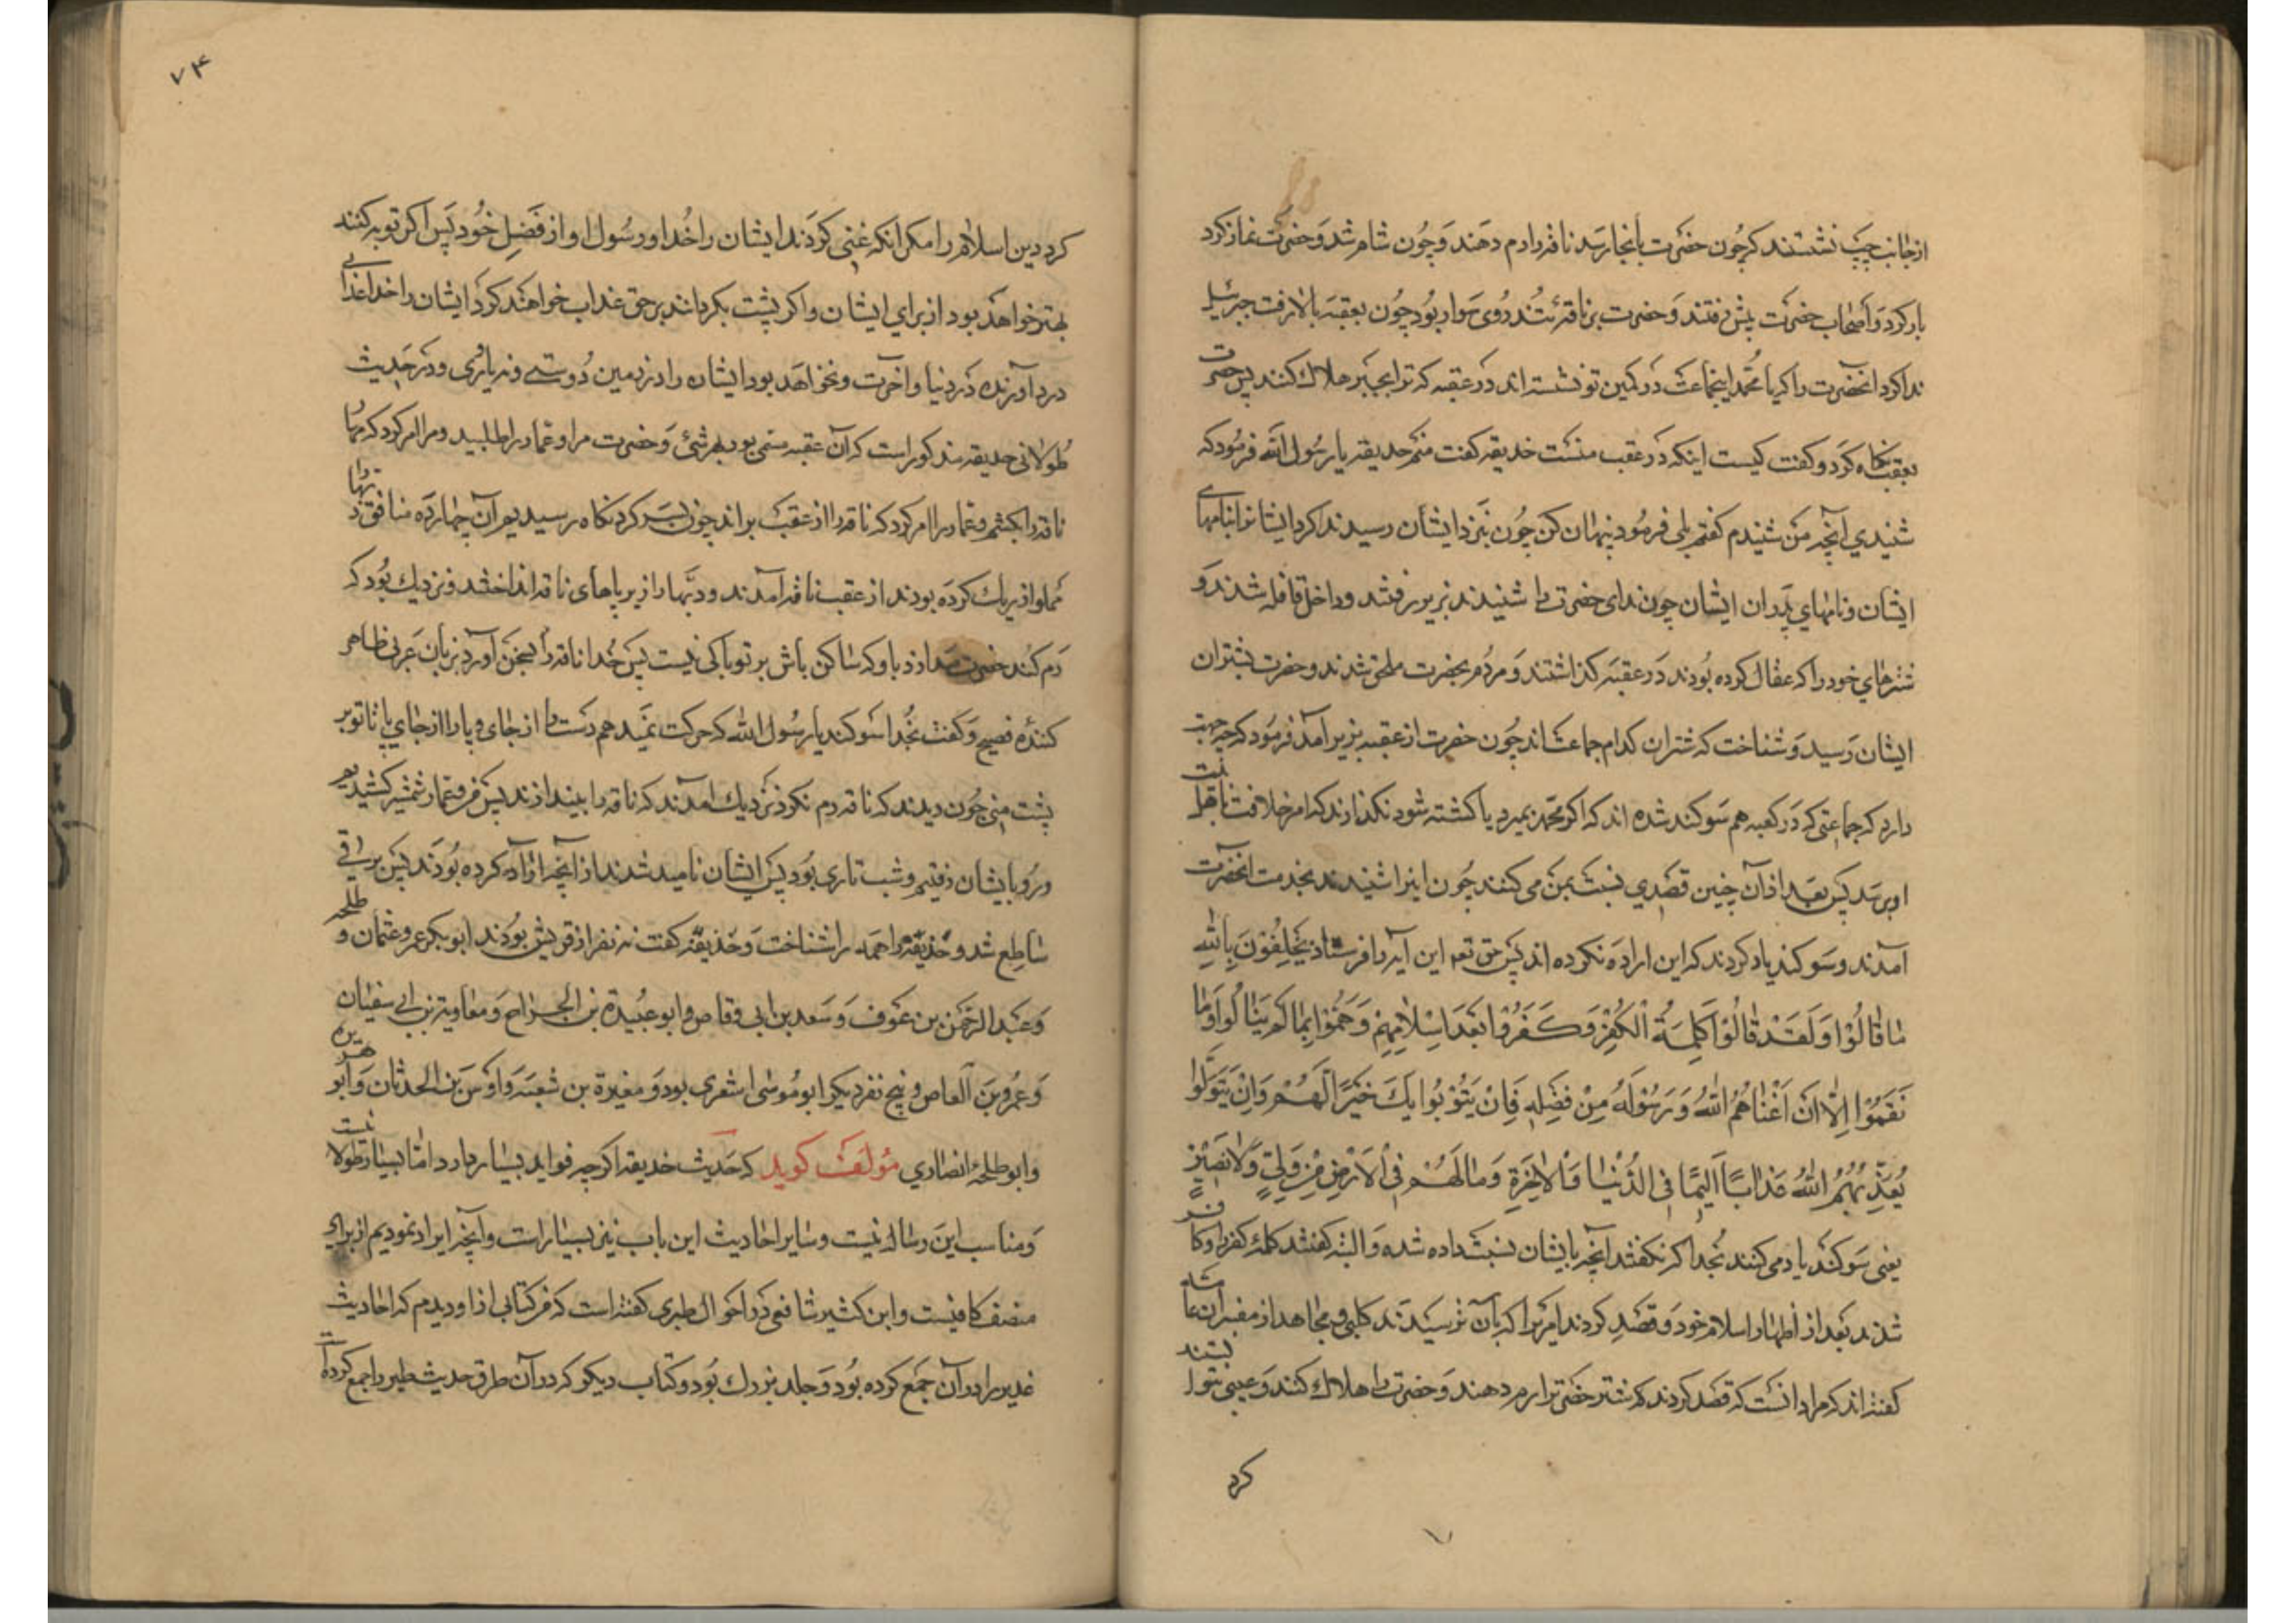 ازجانب چپ نشستند كه چُون حضرت بآنجا رسد ناقه را رم دهند وَچُون شام شد وَحضرت نماز كرد
بار كرد وَاصحاب حضرت پيش رفتند وَحضرت بر ناقهٔ تُند رُوى سَوار بُود چُون بعقبه بالا رفت جبرئيل
ندا كرد آنحضرت را كه يا محُمد اينجماعت دَر كمين تو نشسته اند دَر عقبه كه ترا هلاك كنند پس حضرت
بعقب نگاه كرَد و گفت كيست اينكه دَر عقب منست حذيقه گفت منم حذيقه يا رسُول الله فرمُود كه
شنيدي آنچه مَن شنيدم گفتم بلى فرمُود پنهان كن چُون بنزد ايشان رسيد ندا كرد ايشانرا بنامهاى
ايشان و نامهاي پَدران ايشان چون نداى حضرت را شنيدند بزير رفتند و داخل قافله شدند وَ
شترهاي خود را كه عقال كرده بُودند دَر عقبه گذاشتند وَ مردُم بحضرت ملحق شدند و حضرت بشتران
ايشان رَسيد وَ شناخت كه شتران كدام جماعت اند چُون حضرت از عقبه بزير آمد فرمُود كه چه جهت
دارد كه جماعتى كه دَر كعبه هم سَوگند شده اند كه اگر محمّد بميرد يا كشته شود نگذارند كه امر خلافت باهل بيت
او برسَد پسَ بعَد از آن چنين قصَدي نسبت بمَن مى كنند چُون اينرا شنيدند بخدمت آنحضرت
آمدند و سَوگند ياد كردند كه اين ارادَه نكرده اند پسَ حق تعم اين آيه را فرستاد يَحْلِفُوْنَ بِاللّٰهِ
مٰا قٰالُوْا وَلَقَدْ قٰالُوْا كَلِمَةَ الْكُفْرِ وَكَفَرُوْا بَعْدَ اِسْلٰامِهِمْ وَهَمُّوْا بِمٰا لَمْ يَنٰالُوا وَمٰا
نَقَمُوْا اِلّٰا اَنْ اَغْنٰاهُمُ اللّٰهُ وَرَسُوْلُهُ مِنْ فَضْلِهِ فَاِنْ يَتُوْبُوا يَكُ خَيْرًا لَهُمْ وَاِنْ يَتَوَلَّوْا
يُعَذِّبْهُمُ اللّٰهُ عَذٰابًا اَليٖمًا فِى الدُّنْيٰا وَالْاٰخِرَةِ وَمٰا لَهُمْ فِى الْاَرْضِ مِنْ وَلِىٍّ وَلٰا نَصٖيْرٍ
يعنى سَوگند ياد مى كنند بُخدا كه نگفتند آنچه بايشان نسبت داده شده وَ البته گفتند كلمهٔ كفر را و كافر
شدند بَعد از اظهار اسلام خود وَ قصَدِ كردند امريرا كه بآن نرسيَدند كلبى و مجاهد از مفسران عامّه
گفته اند كه مراد آنست كه قصَد كردند كه شتر حضرترا رم دهند وَ حضرت را هلاك كنند وَ عيبى نتوانستند
كرد
٧٤
كرد دين اسلام را مگر آنكه غنى كردَند ايشان را خُدا و رسُول او از فَضلِ خُود پَس اگر توبه كنند
بهتر خواهَد بود از براي ايشان و اگر پشت بگردانند بر حق عذاب خواهند كرد ايشان را خدا عذابى
درد آورنده دَر دنيا و آخرت و نخواهَد بود ايشان را در زمين دُوستى و نه يارى و دَر حَديث
طُولانى حذيقه مذكور است كه آن عقبه مسمى بود بهرشىٔ وَ حضرت مرا و عمار را طلبيد و مرا امر كرد كه مهار
ناقه را بكشم و عمار را امر كرد كه ناقه را از عقبَ براند چون بسَر گردنگاه رسيديم آن چهارده منافق دبّها را
مملو از ريك كرَده بودند از عقب ناقه آمدند و دبَّها را زير پاهاى ناقه انداختند و نزديك بُود كه
رَم كند حضرت صدا زد باو كه ساكن باش بر تو باكى نيست پسَ خُدا ناقه را بسخَن آورد بزبان عَربى ظاهر
كنندهٔ فصيح وَ گفت بخُدا سَوگند يا رسُول الله كه حركت نميَدهم دَست را از جاى و پا را از جاي پا تا تو بر
پشت منى چُون ديدند كه ناقه رم نكرد نزَديك آمدند كه ناقه را بيندازند پسَ من و عمار شمشير كشيديم
و رُو بايشان رفتيم و شب تارى بُود پسَ ايشان نا اميد شدند از آنچه اراده كرده بُودَند پَس برقى
ساطِع شد و حُذيقَه همه را شناخت وَ حُذيقَه گفت نه نفر از قريش بُودند ابو بكر عمر و عثمان و طلحه
وَ عَبد الرحَمن بن عَوف وَ سَعد بن ابى وقاص و ابو عبُيدة بن الجرّاح وَ معاوية بن ابى سفيان
وَ عمرُو بن العاص و پنج نفر ديگر ابو مُوسى اشعرى بود وَ مغيرة بن شعبَه وَ اوسَ بن الحدثان وَ ابو هريره
و ابو طلحهٔ انصاري مؤلفَ گويد كه حَديث حذيقه اگر چه فوايد بسيار دارد امّا بسيار طولانيست
وَ مناسب اين رسٰاله نيست و سٰاير احٰاديث اين باب نيز بسيٰار است و آنچه ايراد نموديم از براى
منصف كافيست و ابن كثير شافعى دَر احَوال طبرى گفته است كه من كتابى از او ديدم كه احٰاديث
غدير را در آن جَمع كرده بُود وَ جلد بزرك بُود و كتاب ديگر كه در آن طرق حديث طير را جمع كرده است